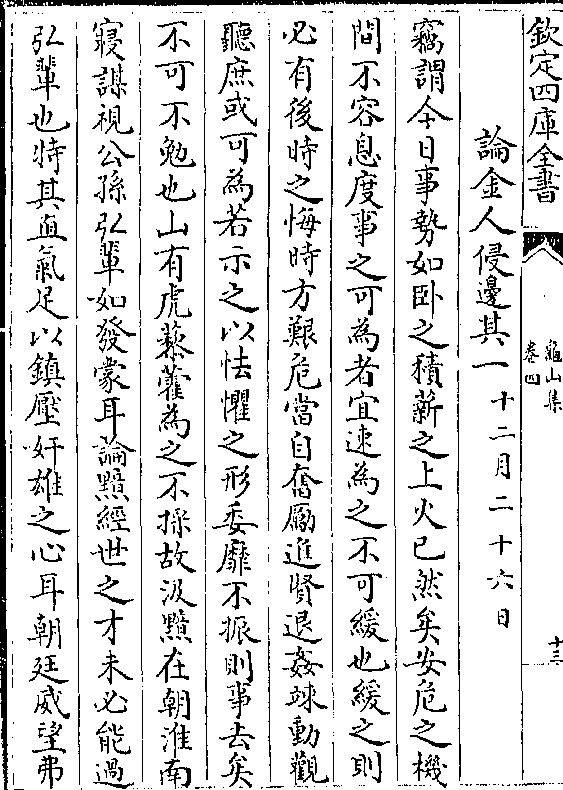 欽定四庫全書
龜山集
卷四
十三
論金人侵邊其一 十二月二十六日
竊謂今日事勢如卧之積薪之上火已然矣安危之機
間不容息度事之可為者宜速為之不可緩也緩之則
必有後時之悔時方艱危當自奮厲進賢退姦竦動觀
聽庶或可為若示之以怯懼之形委靡不振則事去矣
不可不勉也山有虎藜藿為之不採故汲黯在朝淮南
寢謀視公孫弘輩如發蒙耳論黯經世之才未必能過
弘輩也特其直氣足以鎮壓奸雄之心耳朝廷威望弗